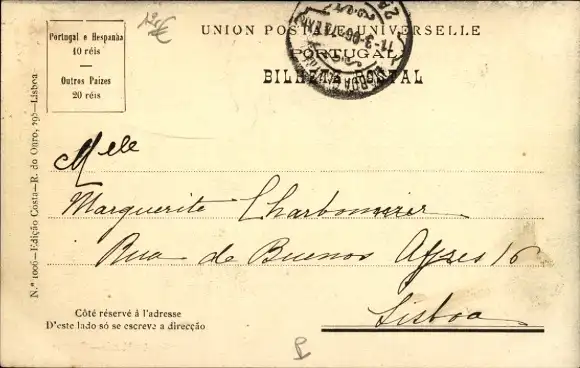 Portugal e Hespanha
10 réis
Outros Paizes
20 réis
UNION POSTALE UNIVERSELLE
PORTUGAL
BILHETE POSTAL
11-3-06
Mele
Marguerite Charbonnier
Rua de Buenos Ayres 16
Lisboa
Côté réservé à l'adresse
D'este lado só se escreve a direcção
N.º 1006—Edição Costa—R. do Ouro, 295—Lisboa